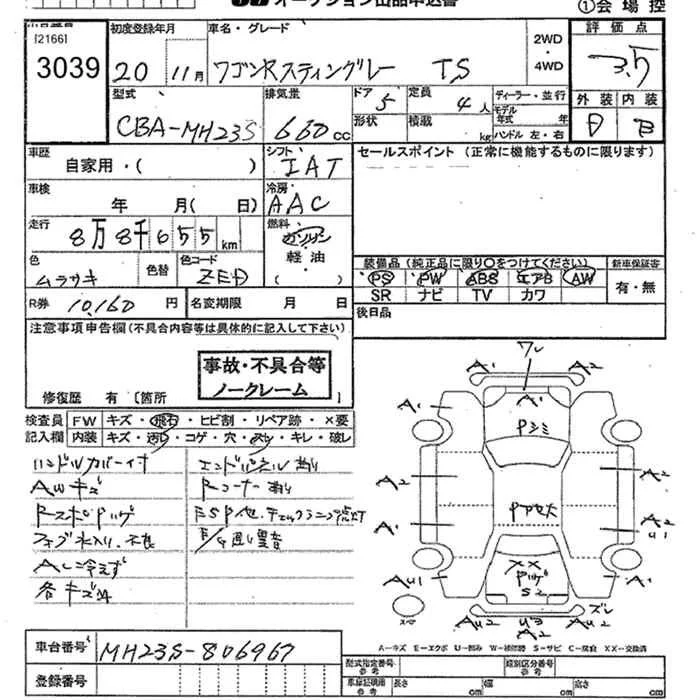 オークション出品申込書
①会場控
[2166]
3039
初度登録年月
20 11月
車名・グレード
ワゴンRスティングレー TS
2WD
・
4WD
評価点
3.5
外装 内装
D B
型式
CBA-MH23S
排気量
660 cc
ドア 5
形状
定員 4人
積載 kg
ディーラー・並行
モデル年式 年
ハンドル 左・右
車歴
自家用・( )
シフト
IAT
セールスポイント (正常に機能するものに限ります)
車検
年 月( 日)
冷房
AAC
走行
8万8千655km
燃料
ガソリン
軽油
( )
色
ムラサキ
色替
色コード
ZED
装備品 (純正品に限り○をつけてください)
新車保証書
PS PW ABS エアB AW
SR ナビ TV カワ
有・無
R券 10,160円
名変期限 月 日
後日品
注意事項申告欄 (不具合内容等は具体的に記入して下さい)
事故・不具合等
ノークレーム
修復歴 有 〔箇所
検査員
記入欄
FW キズ・飛石・ヒビ割・リペア跡・×要
内装 キズ・汚れ・コゲ・穴・スレ・キレ・破レ
ハンドルカバー付
エンドパネル
AWキズ
Rコーナー
ESP他、チェックランプ点灯
ACし冷えず
各キズ凹
ワレ
A1 A2
A1
A1 A2
Pシミ
A2 A2
A1 A2
U1
AU1 A1
XX
S2
スペア
AU2 U3 AU2 ズレ
A2
A-キズ E-エクボ U-凹み W-補修跡 S-サビ C-腐食 XX-交換済
車台番号 MH23S-806967
登録番号
型式指定番号 類別区分番号
車庫証明用 長さ cm 幅 cm 高さ cm